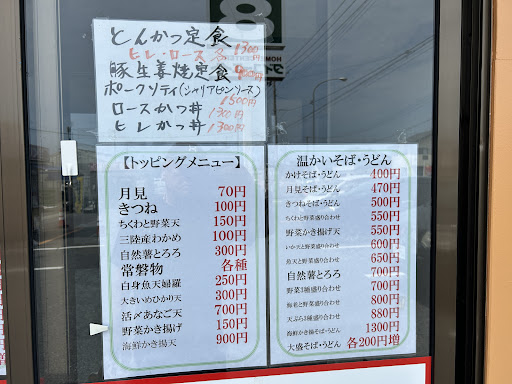 とんかつ定食
ヒレ・ロース 各1300円
豚生姜焼定食 900円
ポークソティ(シャリアピンソース)
1500円
ロースかつ丼 1300円
ヒレかつ丼 1300円
8
【トッピングメニュー】
月見 70円
きつね 100円
ちくわと野菜天 150円
三陸産わかめ 100円
自然薯とろろ 300円
常磐物 各種
白身魚天婦羅 250円
大きいめひかり天 300円
活〆あなご天 700円
野菜かき揚げ 150円
海鮮かき揚天 900円
温かいそば・うどん
かけそば・うどん 400円
月見そば・うどん 470円
きつねそば・うどん 500円
ちくわと野菜盛り合わせ 550円
野菜かき揚げ天 550円
いか天と野菜盛り合わせ 600円
魚天と野菜盛り合わせ 650円
自然薯とろろ 700円
野菜3種盛り合わせ 700円
海老と野菜盛り合わせ 800円
天ぷら3種盛り合わせ 880円
海鮮かき揚そば・うどん 1300円
大盛そば・うどん 各200円増